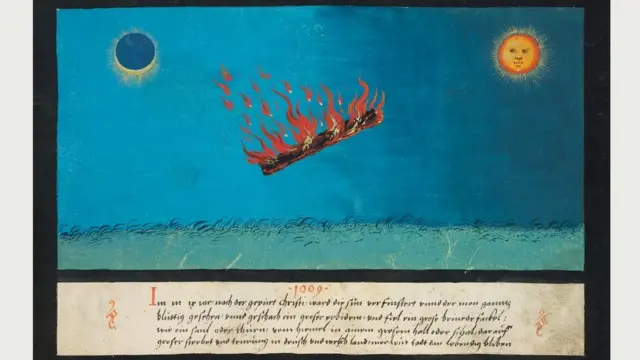 ·1009·
Im m ix iar nach der gepurt christi: ward die sün verfinstert vnnd der mon ganntz
blüttig gesehen: vnnd geschach ein groser erbidem: vnnd fiel ein grose brinende fackel:
wie ein saul oder thurn: vom himel in ainem grosem hall oder schal. darauff
groser sterbet vnd teurung in deusch vnd welsch land: mer leut tod dan lebendig bliben